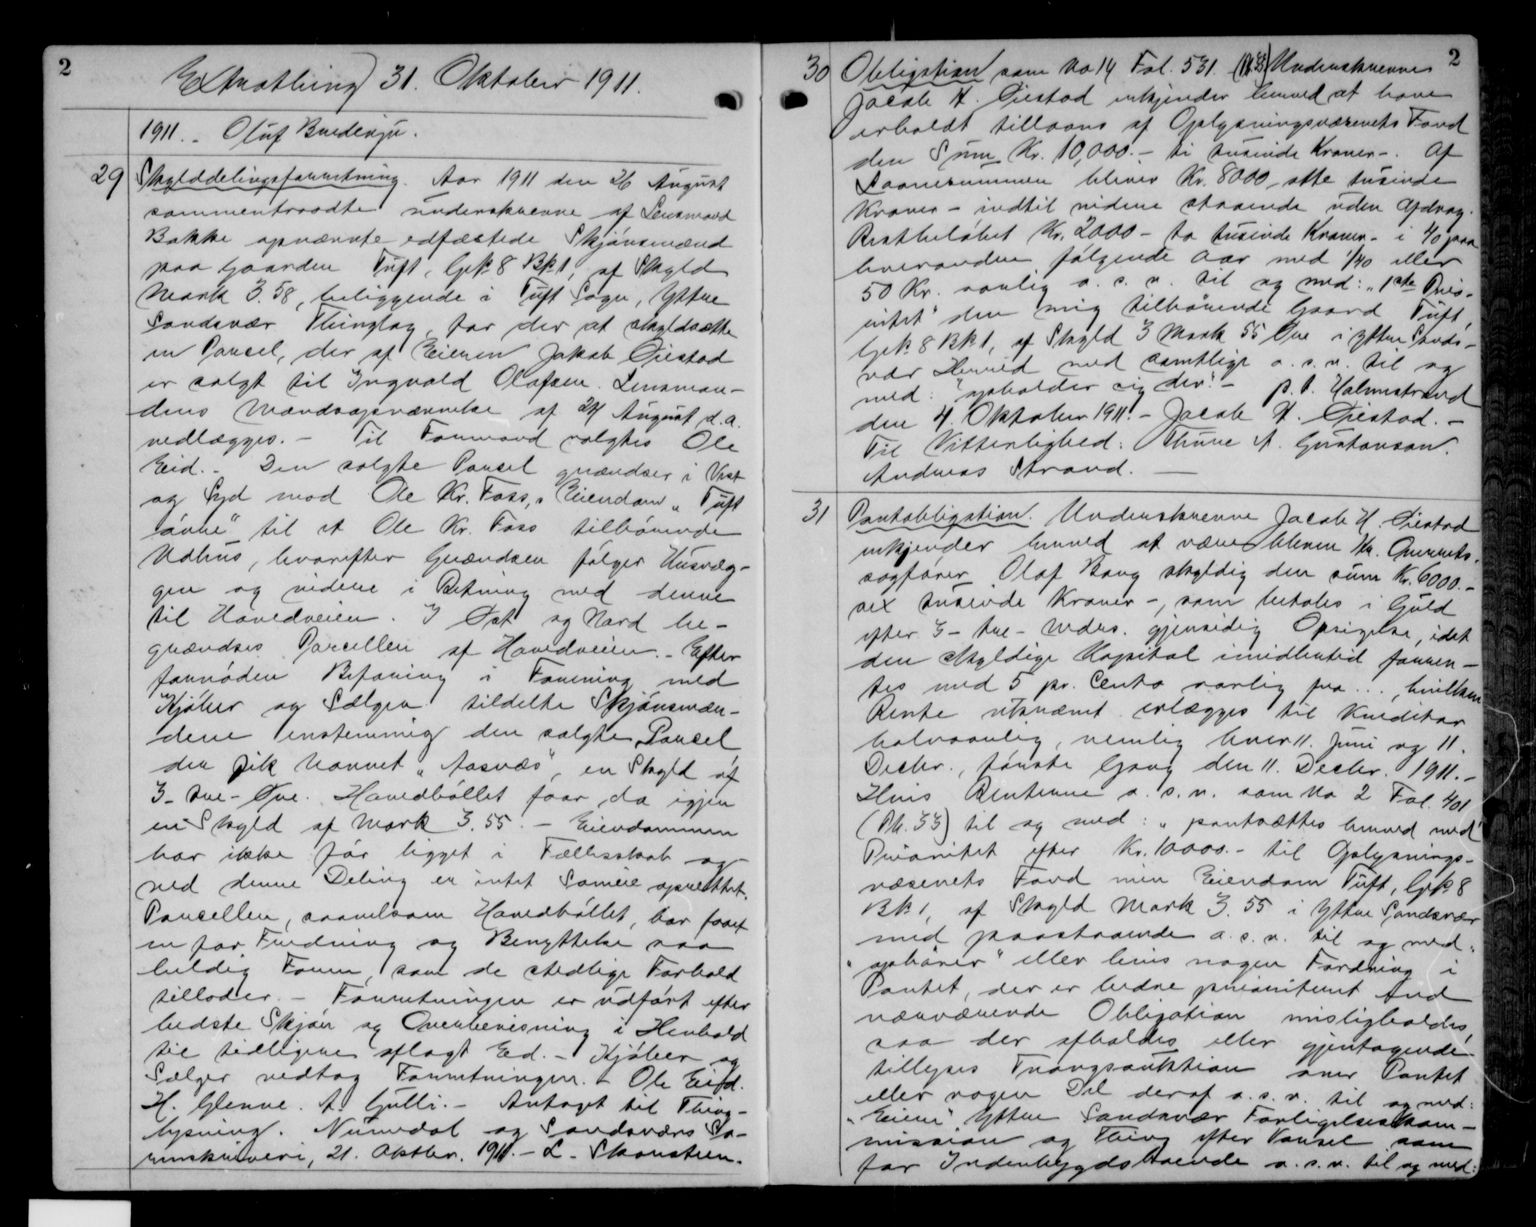 2
Extrathing 31. Oktober 1911.
1911. - Oluf Bredesju.
29 Skylddelingsforretning. Aar 1911 den 26 August
sammentraadte underskrevne af Lensmand
Bakke opnævnte edfæstede Skjönsmænd
paa Gaarden Tuft, Gr.No. 8 Br.No. 1, af Skyld
Mark 3.58, beliggende i Tuft Sogn, Ytre
Sandsvær Thinglag, for der at skyldsætte
en Parsel, der af Eieren Jakob Øiestad
er solgt til Ingvald Olafsen. Lensman-
dens Mandsopnævnelse af 24 August d.a.
vedlægges. - Til Formand valgtes Ole
Eid. - Den solgte Parsel grændser i Vest
og Syd mod Ole Kr. Foss's Eiendom "Tuft
övre" til et Ole Kr. Foss tilhörende
Udhus, hvorefter Grændsen fölger Husvæg-
gen og videre i Retning med denne
til Hovedveien. I Øst og Nord be-
grændses Parcellen af Hovedveien. - Efter
fornöden Befaring i Forening med
Kjöber og Sælger tildelte Skjönsmæn-
dene enstemmig den solgte Parsel
der fik Navnet "Aasnæs", en Skyld af
3 - tre - Øre. Hovedböllet faar da igjen
en Skyld af Mark 3.55. - Eiendommen
har ikke för ligget i Fællesskab og
ved denne Deling er intet Sameie oprettet.
Parcellen, saavelsom Hovedböllet, har faaet
en for Fredning og Benyttelse saa
heldig Form, som de stedlige Forhold
tillader. - Forretningen er udfört efter
bedste Skjön og Overbevisning i Henhold
til tidligere aflagt Ed. - Kjöber og
Sælger vedtog Forretningen. - Ole Eid.
H. Glenne. A. Gulli. - Antaget til Thing-
lysning. Numedal og Sandsværs So-
renskriveri, 21. Oktbr. 1911. - L. Skonstien.
2
30 Obligation som No 14 Fol. 531. (Pb. 33) Underskrevne
Jacob H. Øiestad erkjender herved at have
erholdt tillaans af Oplysningsvæsenets Fond
den Sum Kr. 10,000. - ti tusinde Kroner -. Af
Laanesummen bliver Kr. 8000, otte tusinde
Kroner - indtil videre staaende uden Afdrag.
Restbelöbet Kr. 2000 - to tusinde Kroner - i 40 paa
hverandre fölgende Aar med 1/40 eller
50 Kr. aarlig o. s. v. til og med: "1ste Prio-
ritet" den mig tilhörende Gaard Tuft,
Gr.No. 8 Br.No. 1, af Skyld 3 Mark 55 Øre i Ytre Sands-
vær Herred med samtlige o. s. v. til og
med: "opholder sig der." - p. t. Holmestrand
den 4. Oktober 1911. - Jacob H. Øiestad. -
Til Vitterlighed: Thune A. Gustavson.
Andreas Strand. -
31 Pantobligation. Underskrevne Jacob H. Øiestad
erkjender herved at være bleven Hr. Overrets-
sagförer Olaf Bang skyldig den sum Kr. 6000. -
sex tusinde Kroner -, som betales i Guld
efter 3 - tre - Mdrs. gjensidig Opsigelse, idet
den skyldige Kapital imidlertid forren-
tes med 5 pr. Cento aarlig fra ..., hvilken
Rente utvæmt erlægges til Kreditor
halvaarlig, nemlig hver 11. Juni og 11.
Decbr., förste Gang den 11. Decbr. 1911. -
Hvis Renterne o. s. v. som No 2 Fol. 401
(Pb. 33) til og med: "pantsættes herved med"
Prioritet efter Kr. 10000. - til Oplysnings-
væsenets Fond min Eiendom Tuft, Gr.No. 8
Br.No. 1, af Skyld Mark 3.55 i Ytre Sandsvær
med paastaaende o. s. v. til og med:
"ophörer" eller hvis nogen Fordring i
Pantet, der er bedre prioriteret end
nærværende Obligation misligholdes,
saa der afholdes eller gjentagende
tillyses Tvangsauktion over Pantet
eller nogen Del deraf o. s. v. til og med:
"Eiere." Ytre Sandsvær Forligelseskom-
mission og Thing efter Varsel som
for Indenbygdsboende o. s. v. til og med: